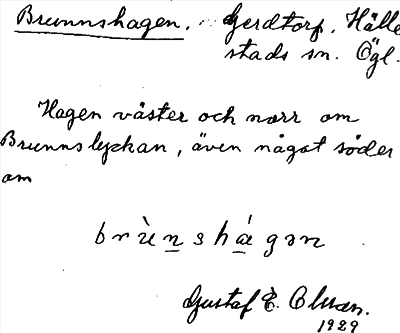 Brunnshagen. Gerdtorp. Hälle
stads sn. Ögl.
Hagen väster och norr om
Brunnslyckan, även något söder
om
brùnshágən
Gustaf E.
1929